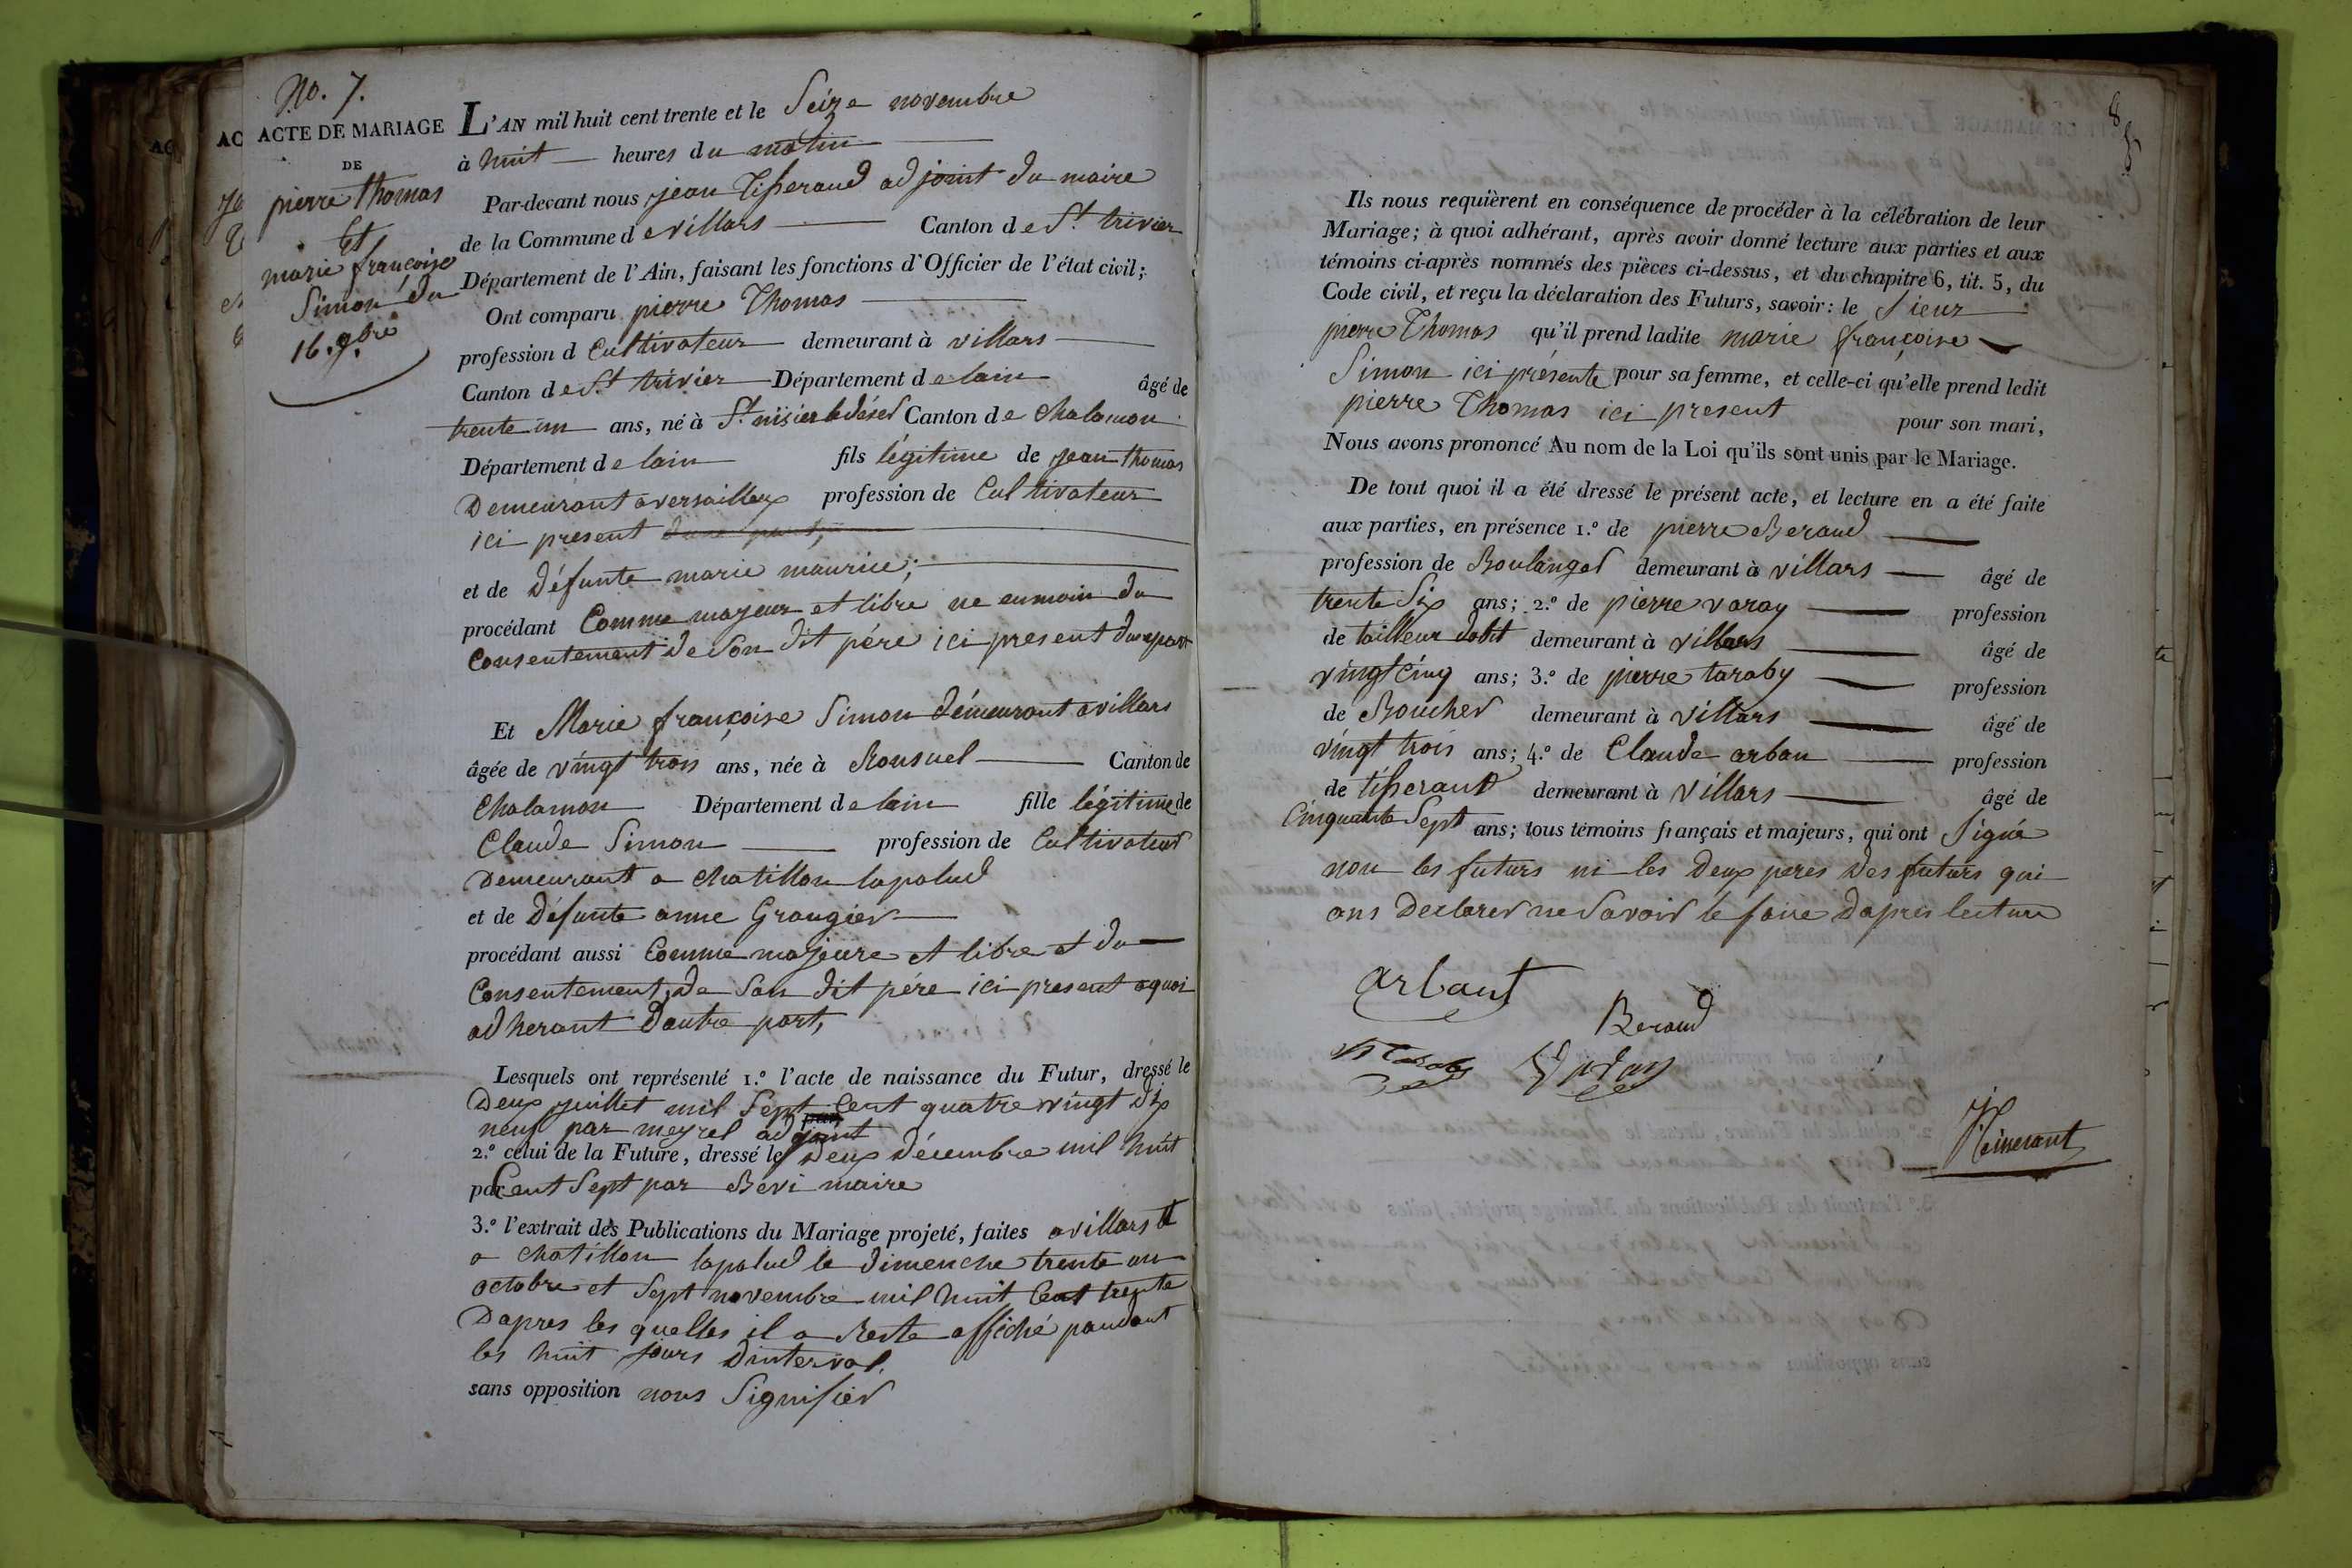 No. 7.
ACTE DE MARIAGE
DE
pierre thomas
Et
marie françoise
Simon du
16. 9bre
L'AN mil huit cent trente et le Seize novembre
à huit heures du matin
Par-devant nous jean Tisseraud adjoint du maire
de la Commune de villars Canton de St. trivier
Département de l'Ain, faisant les fonctions d'Officier de l'état civil;
Ont comparu pierre Thomas
profession d Cultivateur demeurant à villars
Canton de St. trivier Département de lain âgé de
trente un ans, né à St. nisier le déser Canton de Chalamon
Département de lain fils légitime de jean thomas
Demeurant a versailleux profession de Cultivateur
ici present d'une part,
et de Défunte marie maurice;
procédant Comme majeur et libre ne enmoin du
Consentement de Son dit pére ici present dune part
Et Marie françoise Simon démeurant a villars
âgée de vingt trois ans, née à Ronsuel Canton de
Chalamon Département de lain fille légitime de
Claude Simon profession de Cultivateur
Demeurant a Chatillon lapalud
et de Défunte anne Grangier
procédant aussi Comme majeure et libre et du
Consentement de Son dit pére ici present a quoi
adherant Dautre part,
Lesquels ont représenté 1.º l'acte de naissance du Futur, dressé le
Deux juillet mil Sept Cent quatre vingt dix
neuf par meyrel adjoint
2.º celui de la Future, dressé le Deux décembre mil huit
par Cent Sept par Bevi maire
3.º l'extrait des Publications du Mariage projeté, faites a villars et
a Chatillon lapalud le dimenche trente un
octobre et Sept novembre mil huit Cent trente
Dapres les quelles il a Reste affiché pandant
les huit jours Dinterval.
sans opposition nous Signifier
8
Ils nous requièrent en conséquence de procéder à la célébration de leur
Mariage; à quoi adhérant, après avoir donné lecture aux parties et aux
témoins ci-après nommés des pièces ci-dessus, et du chapitre 6, tit. 5, du
Code civil, et reçu la déclaration des Futurs, savoir: le Sieur
pierre Thomas qu'il prend ladite marie françoise
Simon ici présente pour sa femme, et celle-ci qu'elle prend ledit
pierre Thomas ici present pour son mari,
Nous avons prononcé Au nom de la Loi qu'ils sont unis par le Mariage.
De tout quoi il a été dressé le présent acte, et lecture en a été faite
aux parties, en présence 1.º de pierre Beraud
profession de Boulanger demeurant à villars âgé de
trente Six ans; 2.º de pierre varay profession
de tailleur dabit demeurant à villars âgé de
vingt Cinq ans; 3.º de pierre taraby profession
de Boucher demeurant à villars âgé de
vingt trois ans; 4.º de Claude arbau profession
de tisserant demeurant à villars âgé de
Cinquante Sept ans; tous témoins français et majeurs, qui ont Signé
non les futurs ni les Deux peres Des futurs qui
ons Declarer ne Savoir le faire Dapres lecture
arbaut
Beraud